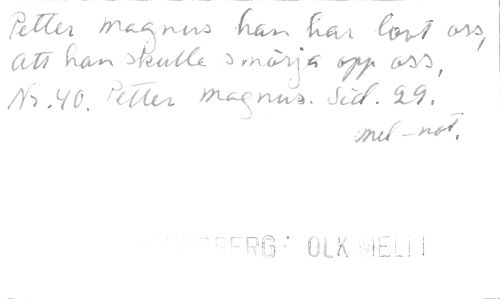 Petter Magnus han har lovt oss,
att han skulle smörja opp oss,
Nr. 40. Petter Magnus. Sid. 29.
mel-not.
OLK MEL